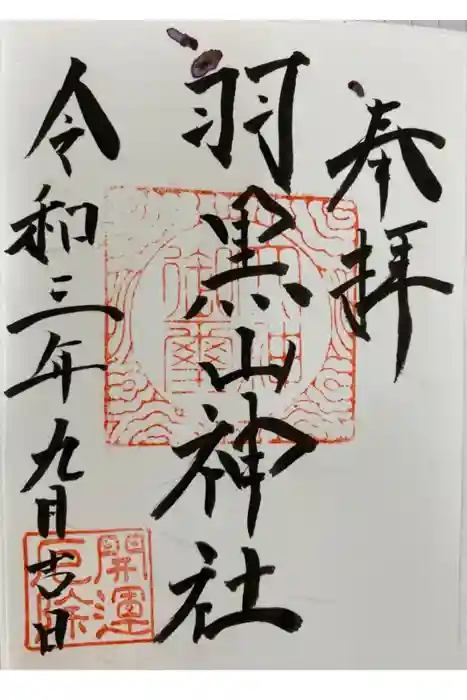 奉拝
羽黒山神社
令和三年九月吉日
開運
厄除